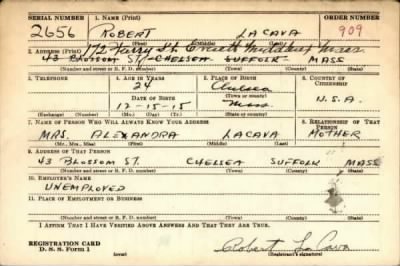 SERIAL NUMBER 1. NAME (Print) ORDER NUMBER
2656 ROBERT LACAVA 909
(First) (Middle) (Last)
2. ADDRESS (Print) 172 Ferry St. Everett Middlesex Mass
43 BLOSSOM ST. CHELSEA SUFFOLK MASS
(Number and street or R. F. D. number) (Town) (County) (State)
3. TELEPHONE 4. AGE IN YEARS 5. PLACE OF BIRTH 6. COUNTRY OF CITIZENSHIP
24 Chelsea
DATE OF BIRTH (Town or county)
12-15-15 Mass. U.S.A.
(Exchange) (Number) (Mo.) (Day) (Yr.) (State or country)
7. NAME OF PERSON WHO WILL ALWAYS KNOW YOUR ADDRESS 8. RELATIONSHIP OF THAT PERSON
MRS. ALEXANDRA LACAVA MOTHER
(Mr., Mrs., Miss) (First) (Middle) (Last)
9. ADDRESS OF THAT PERSON
43 BLOSSOM ST. CHELSEA SUFFOLK MASS
(Number and street or R. F. D. number) (Town) (County) (State)
10. EMPLOYER'S NAME
UNEMPLOYED
11. PLACE OF EMPLOYMENT OR BUSINESS
(Number and street or R. F. D. number) (Town) (County) (State)
I AFFIRM THAT I HAVE VERIFIED ABOVE ANSWERS AND THAT THEY ARE TRUE.
REGISTRATION CARD
D. S. S. Form 1 (over) Robert La Cava
(Registrant's signature)